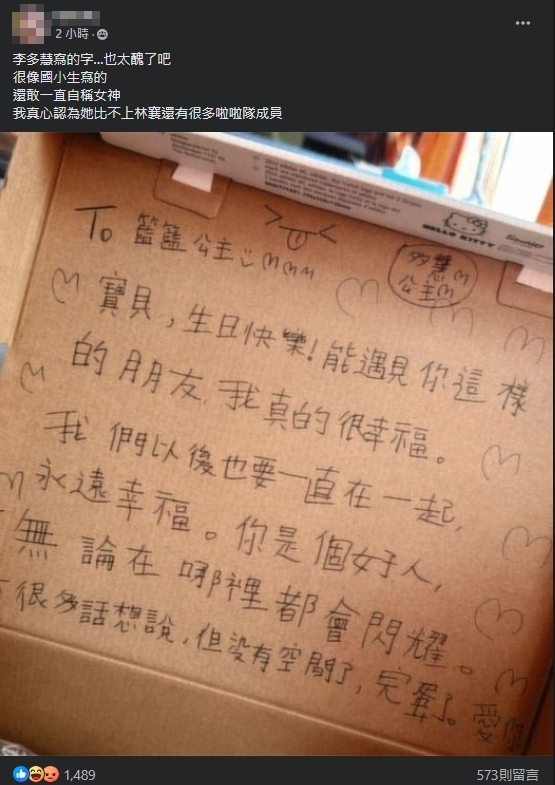 2 小時 ·
李多慧寫的字...也太醜了吧
很像國小生寫的
還敢一直自稱女神
我真心認為她比不上林襄還有很多啦啦隊成員
HELLO KITTY
To 籃籃公主
多慧
公主
寶貝，生日快樂!能遇見你這樣
的朋友.我真的很幸福。
我們以後也要一直在一起,
永遠幸福。你是個好人,
無論在哪裡都會閃耀。
很多話想說,但没有空間了,完蛋了。愛你
1,489
573則留言